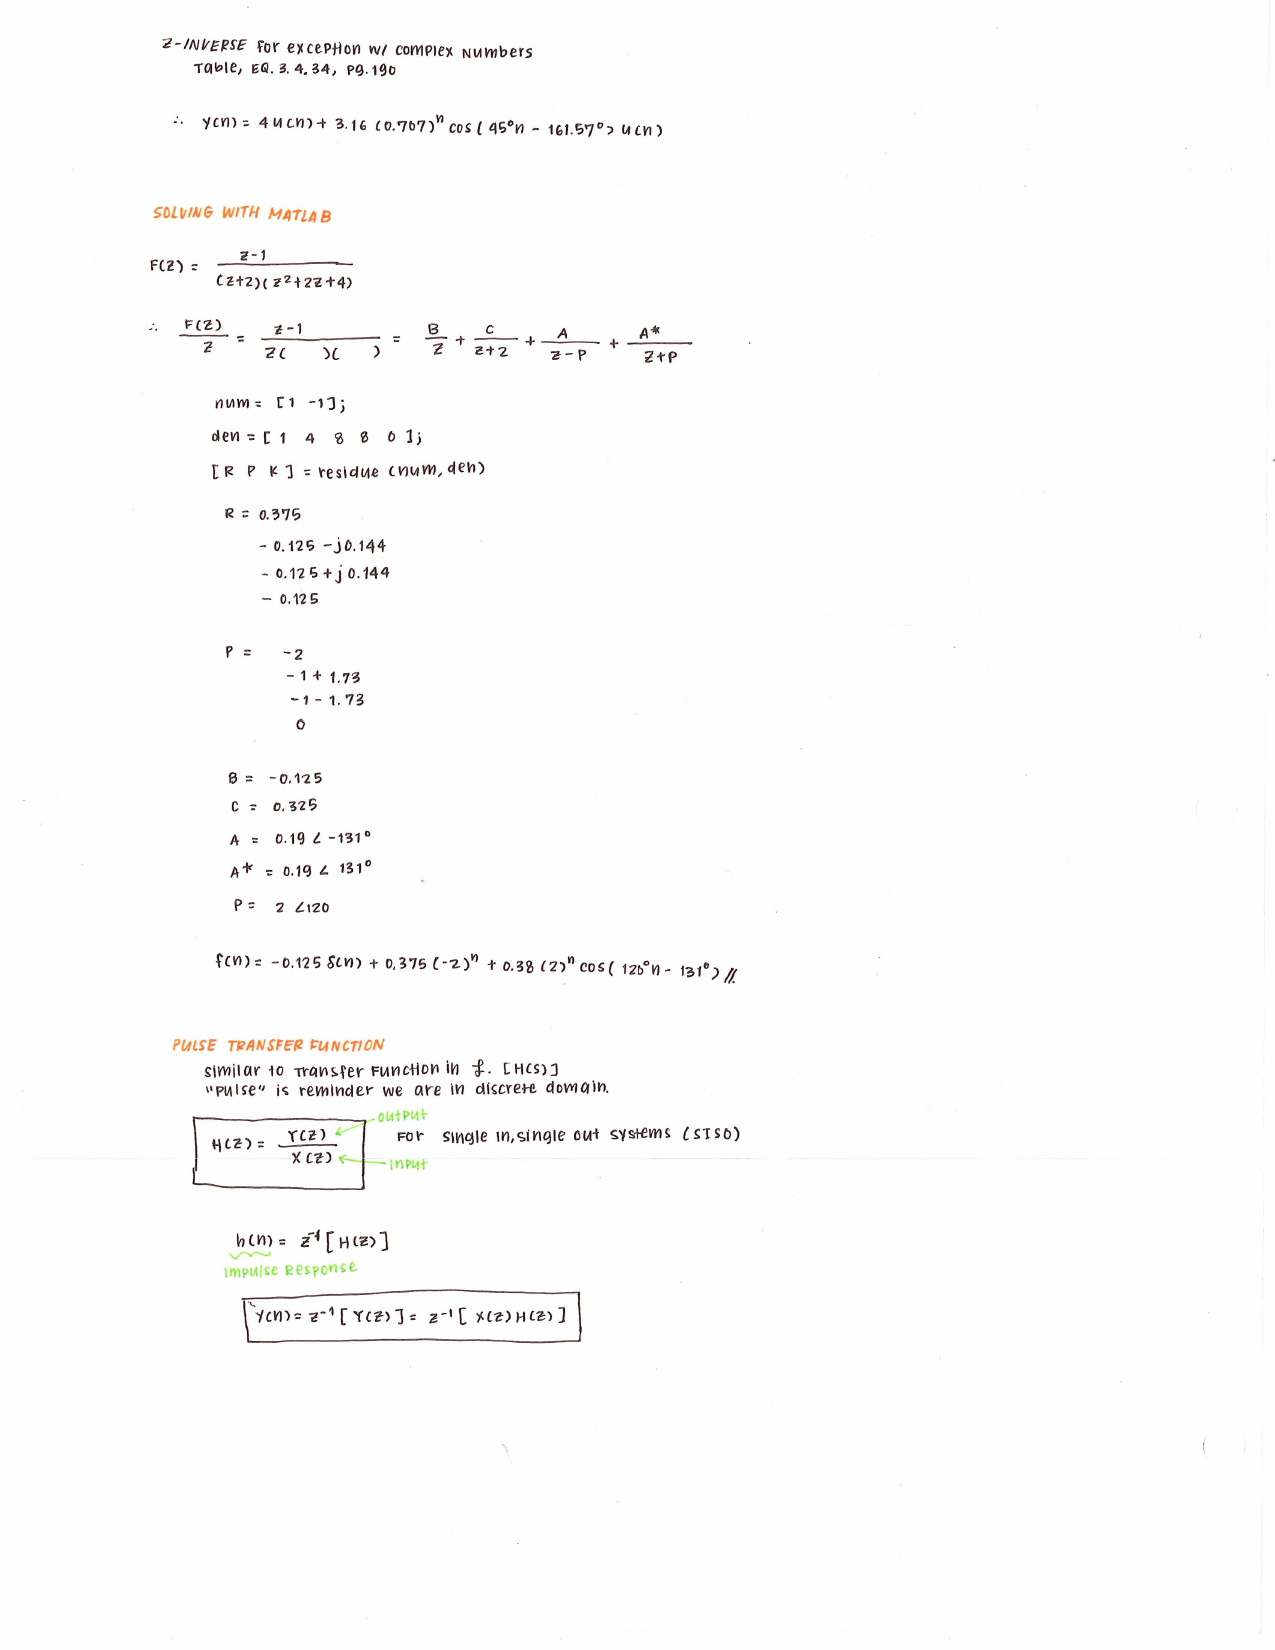 Z-INVERSE For exception w/ complex Numbers
Table, EQ. 3.4.34, pg. 190
∴ y(n) = 4 u(n) + 3.16 (0.707)ⁿ cos(45°n - 161.57°) u(n)
SOLVING WITH MATLAB
F(Z) = z-1 / (z+2)(z²+2z+4)
∴ F(Z)/Z = z-1 / Z( )( ) = B/Z + C/z+2 + A/z-P + A*/z+P
num = [1 -1];
den = [1 4 8 8 0];
[R P K] = residue (num, den)
R = 0.375
- 0.125 - j0.144
- 0.125 + j0.144
- 0.125
P = -2
-1 + 1.73
-1 - 1.73
0
B = -0.125
C = 0.325
A = 0.19 ∠ -131°
A* = 0.19 ∠ 131°
P = 2 ∠120
f(n) = -0.125 δ(n) + 0.375 (-2)ⁿ + 0.38 (2)ⁿ cos(120°n - 131°) //
PULSE TRANSFER FUNCTION
similar to Transfer Function in ℒ. [H(s)]
"Pulse" is reminder we are in discrete domain.
output
H(Z) = Y(Z) / X(Z) For single in, single out systems (SISO)
input
h(n) = z⁻¹ [H(Z)]
Impulse Response
y(n) = z⁻¹ [Y(Z)] = z⁻¹ [X(Z) H(Z)]